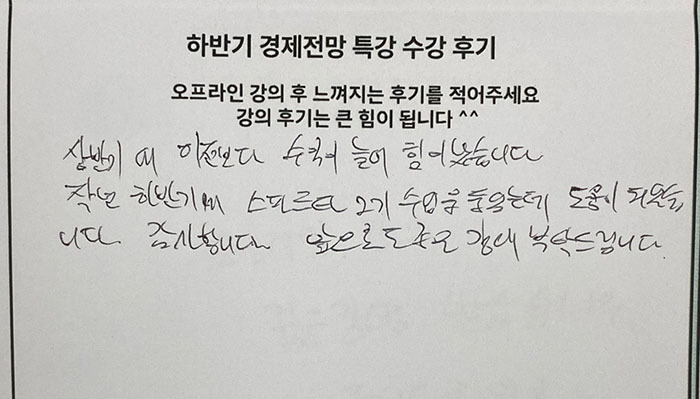 하반기 경제전망 특강 수강 후기
오프라인 강의 후 느껴지는 후기를 적어주세요
강의 후기는 큰 힘이 됩니다 ^^
상반기 때 이전보다 수익이 늘어 힘이 났습니다
작년 하반기에 스파르타 2기 수업을 들었는데 도움이 되었습
니다. 감사합니다. 앞으로도 좋은 강의 부탁드립니다.